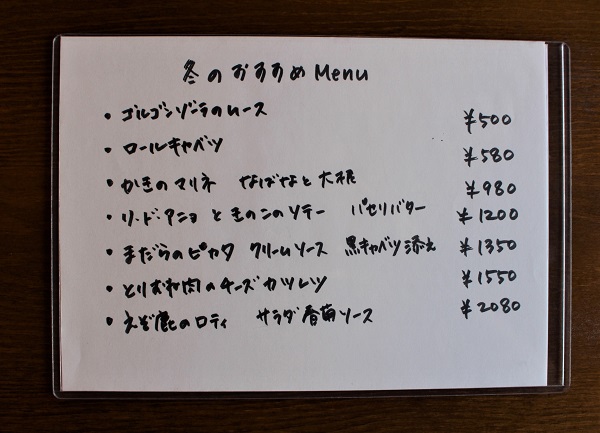 冬のおすすめMenu
・ゴルゴンゾーラのムース ¥500
・ロールキャベツ ¥580
・かきのマリネ なばなと大根 ¥980
・リ・ド・アニョときのこのソテー パセリバター ¥1200
・まだらのピカタ クリームソース 黒キャベツ添え ¥1350
・とりむね肉のチーズカツレツ ¥1550
・えぞ鹿のロティ サラダ春菊ソース ¥2080